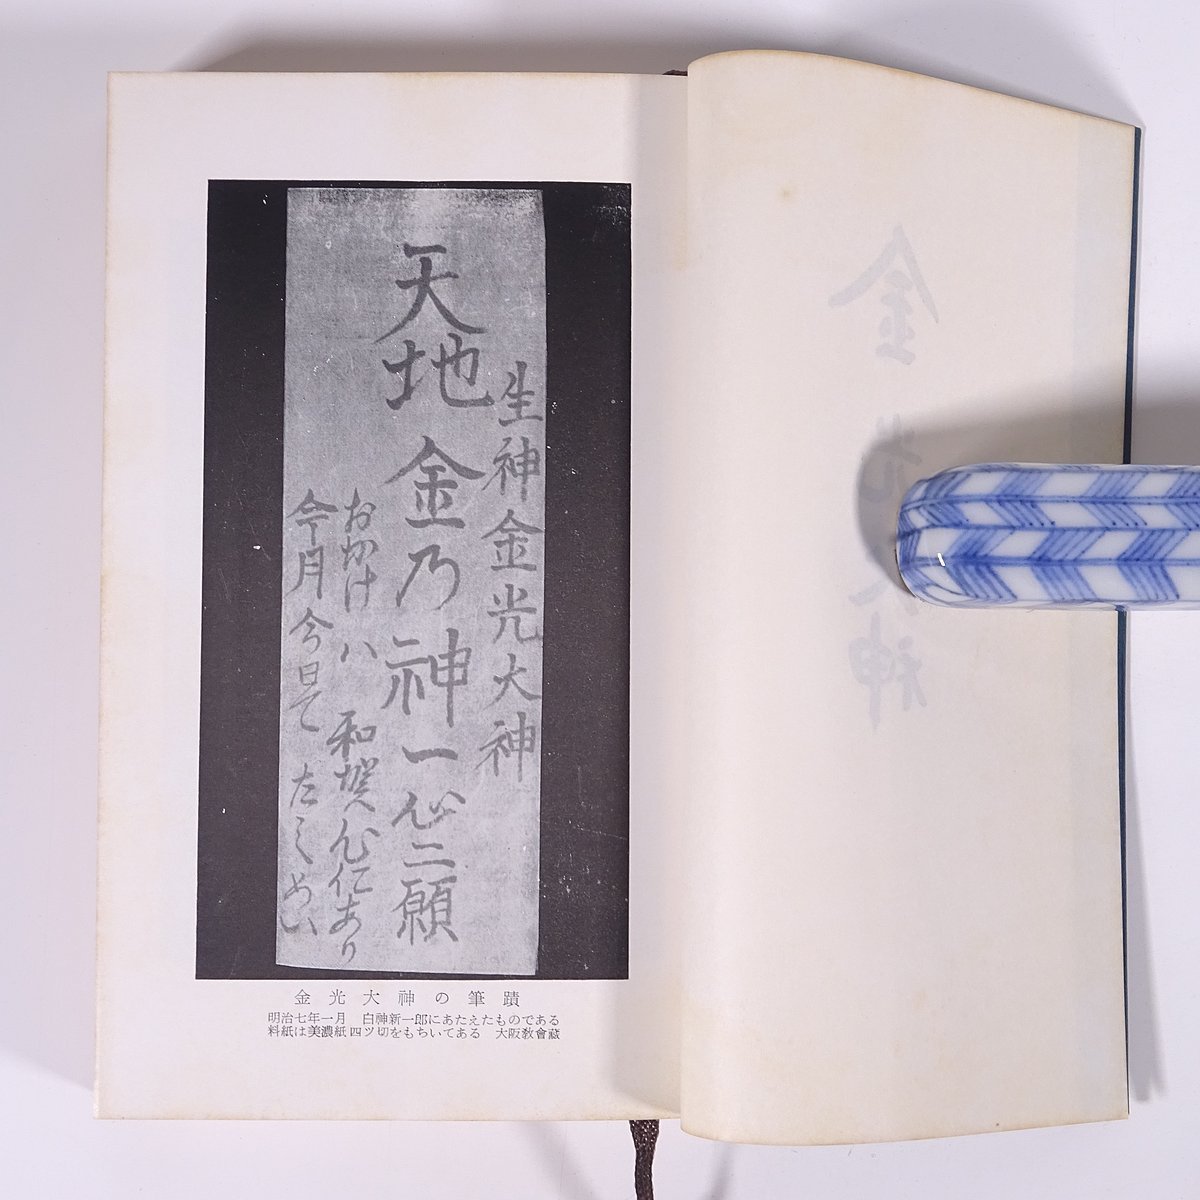 生神金光大神
天地金乃神一心ニ願
おかげハ和賀心にあり
今月今日でたのめい
金光大神の筆蹟
明治七年一月 白神新一郎にあたえたものである
料紙は美濃紙四ツ切をもちいてある 大阪敎會藏
金光大神